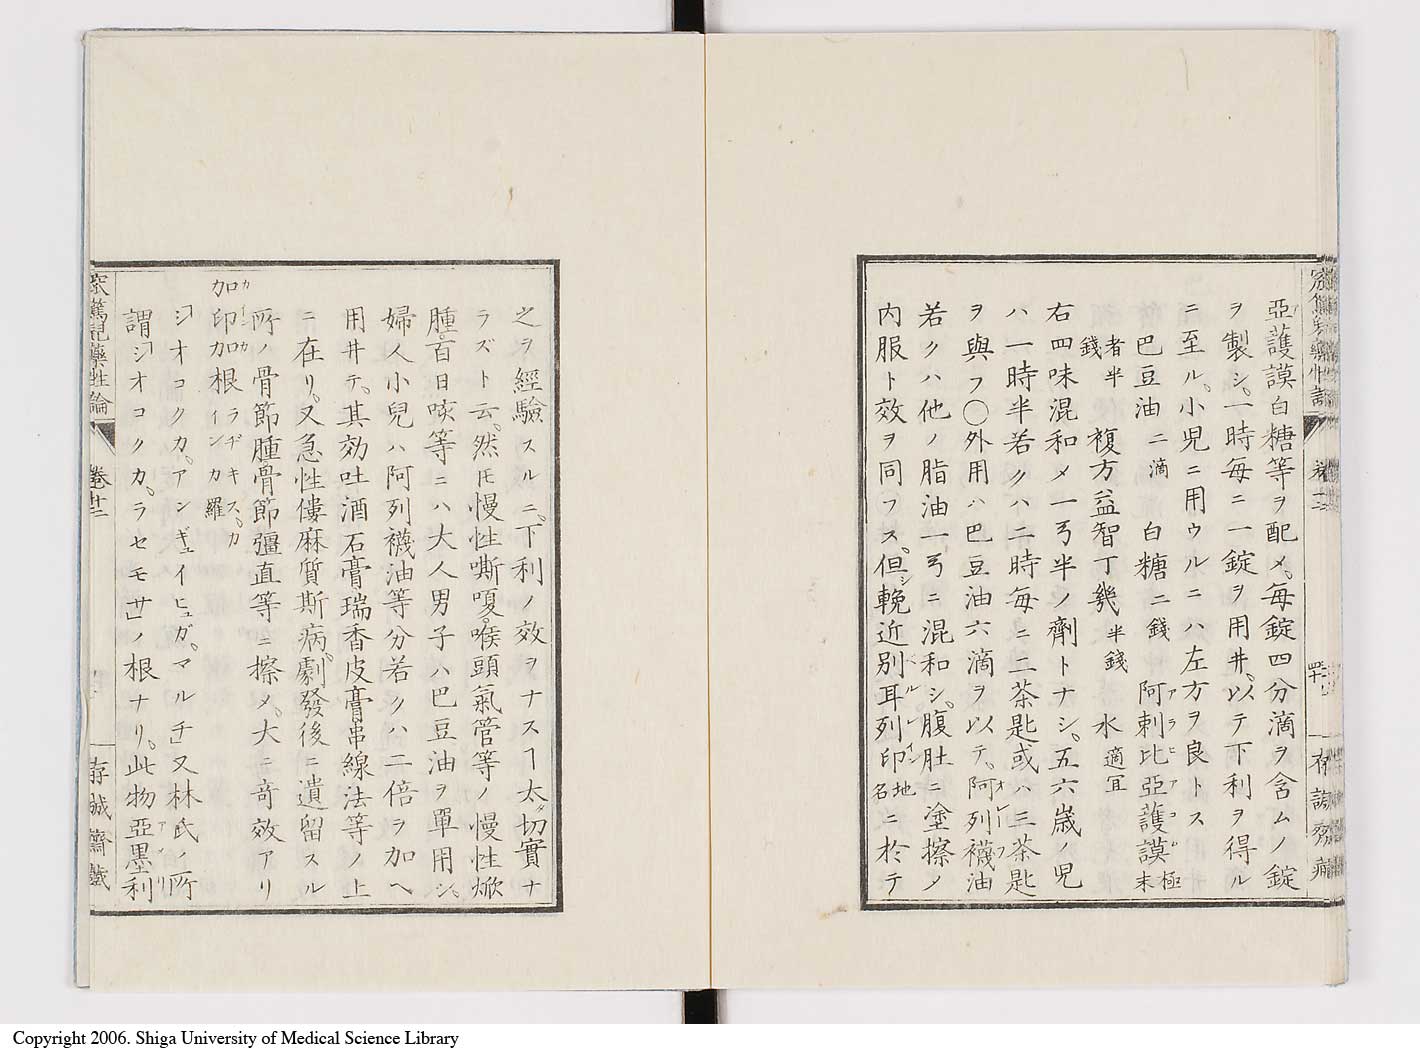 亞護謨白糖等ヲ配メ。毎錠四分滴ヲ含ムノ錠
ヲ製シ。一時毎ニ一錠ヲ用井。以テ下利ヲ得ル
ニ至ル。小児ニ用ウルニハ左方ヲ良トス
巴豆油 二滴 白糖二錢 阿刺比亞護謨 極末
者半錢 複方益智丁幾 半錢 水 適冝
右四味混和メ一弓半ノ劑トナシ。五六歳ノ児
ハ一時半若クハ二時毎ニ二茶匙或ハ三茶匙
ヲ與フ〇外用ハ巴豆油六滴ヲ以テ。阿列襪油
若クハ他ノ脂油一弓ニ混和シ。腹肚ニ塗擦メ
内服ト效ヲ同フス。但シ輓近別耳列印 地名 ニ於テ
之ヲ經驗スルニ。下利ノ效ヲナスヿ太タ切實ナ
ラズト云。然𪜈慢性嘶嗄。喉頭氣管等ノ慢性焮
腫。百日咳等ニハ大人男子ハ巴豆油ヲ單用シ。
婦人小兒ハ阿列襪油等分若クハ二倍ヲ加ヘ
用井テ。其効吐酒石膏瑞香皮膏串線法等ノ上
ニ在リ。又急性僂麻質斯病。劇發後ニ遺留スル
所ノ骨節腫骨節彊直等ニ擦メ。大ニ奇效アリ
加印加根 ラヂキス。カインカ羅
「シオコクカ。アンギュイヒュガ。マルチ」又林氏ノ所
謂「シオコクカ。ラセモサ」ノ根ナリ。此物亞墨利
藥性論
卷廿二
存誠齋藏